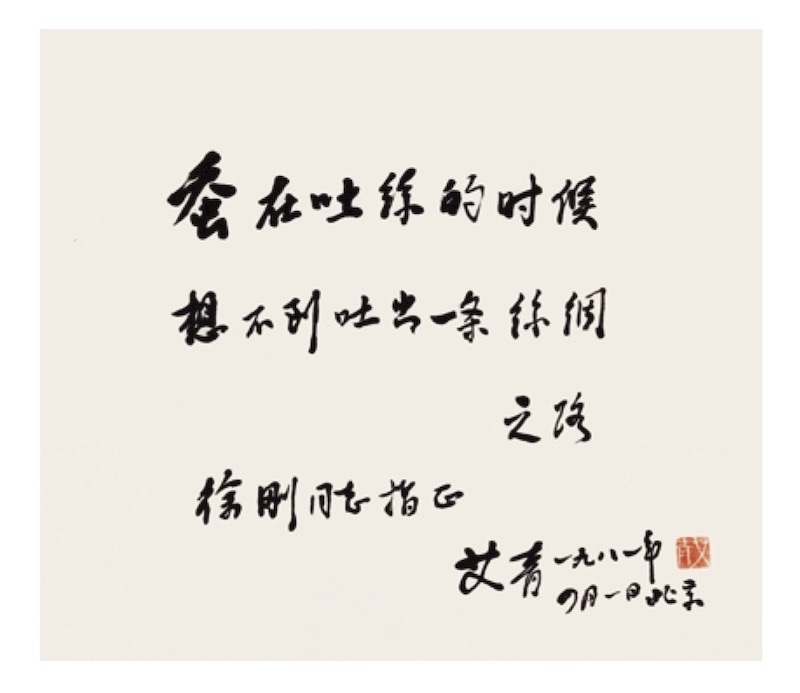 蚕在吐絲的时候
想不到吐出一条絲绸
之路
徐刚同志指正
艾青 一九八一年
四月一日北京
艾青